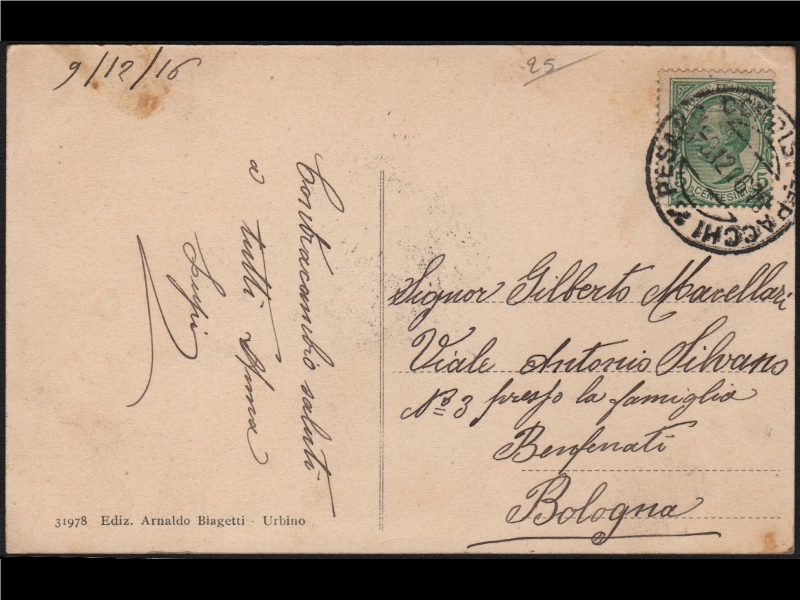 9/12/16
25
Contracambio saluti
a tutti
PESARO
PACCHI
CENTESIMI 5
Signor Gilberto Macellari
Viale Antonio Silvano
No 3 presso la famiglia
Benfenati
Bologna
31978 Ediz. Arnaldo Biagetti - Urbino